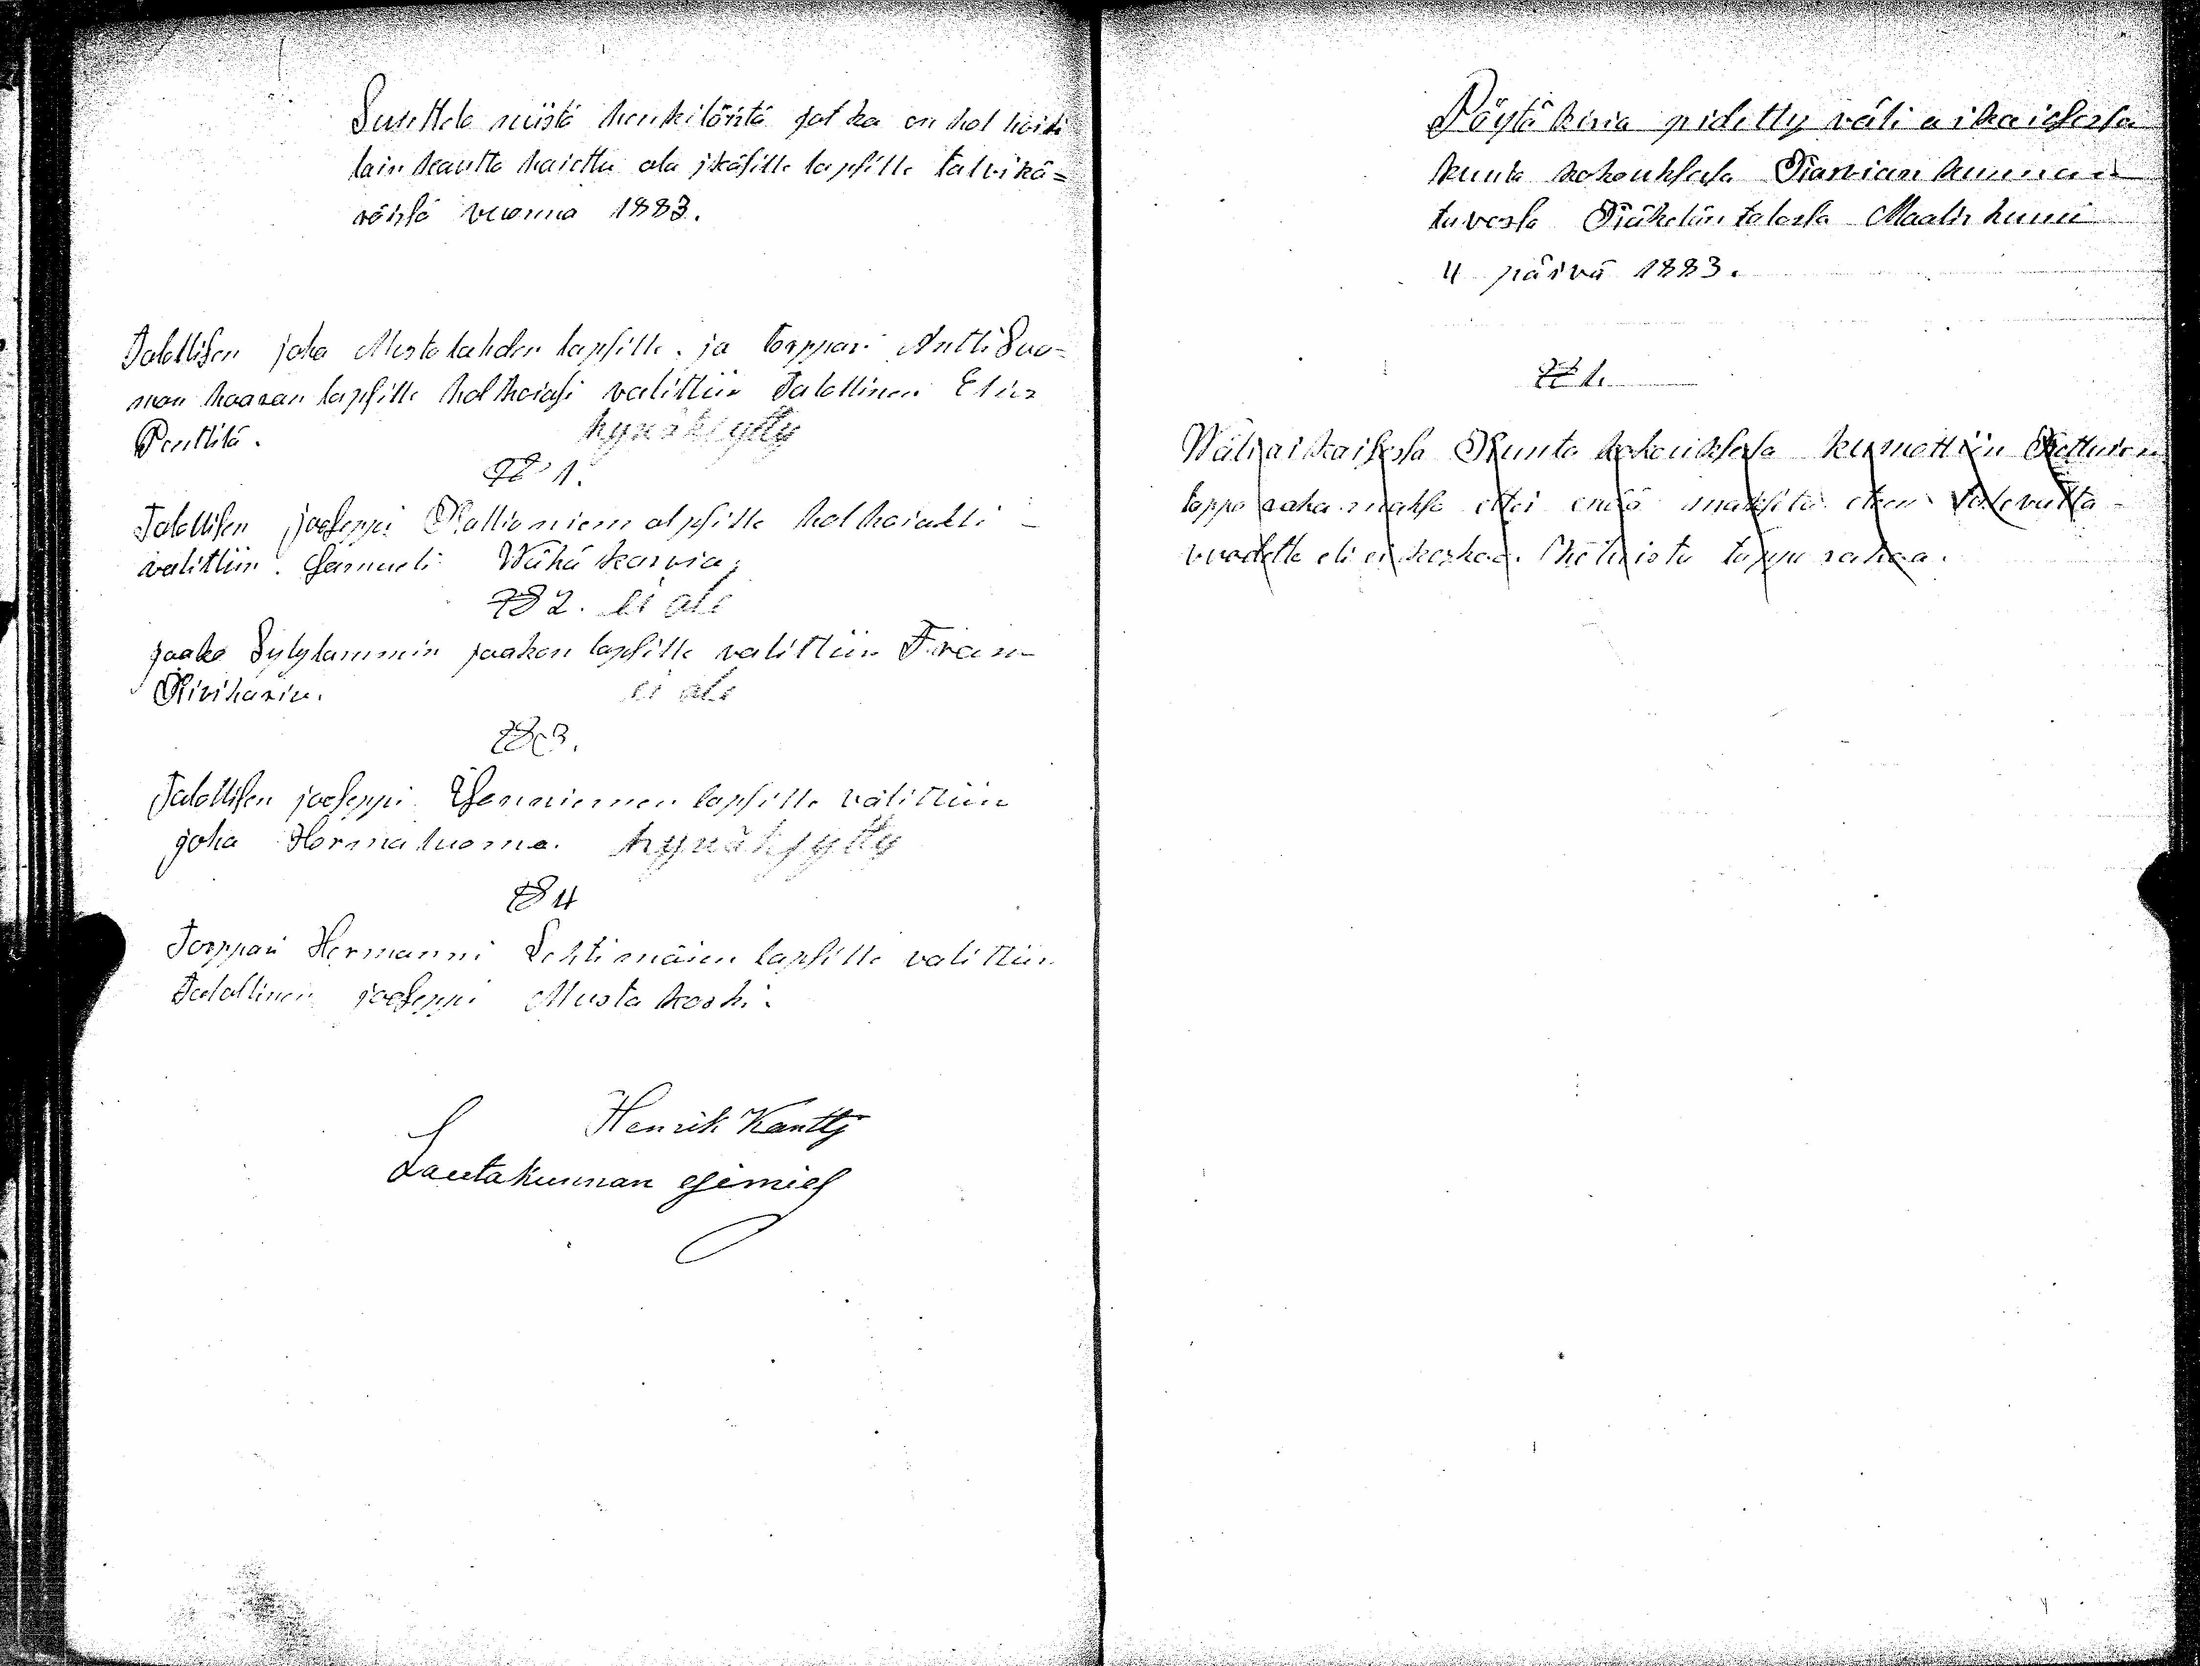 Suhttelo niistä henkilöistä jotka on hol hoiti
lain kautta haiettu ala jkäsille lapsille talvikä=
röissä vuonna 1883.
Talollisen joha Mustalahden lapsille. ja torppari Antti Suo=
man haaran lapsille holhoiasi valittiin Talollinen Elias
Penttilä. hyväksytty
§ 1.
Talollisen joeseppi Kallioniem alpsille holhoiaksi
valittiin. Samueli Wähä karvia
§ 2. ei ole
jaako Sylylammin jaakon lapsille valittiin Frans
Kiviharju. ei ole
§ 3.
Talollisen joeseppi Isenniemen lapsille valittiin
joha Hormaluoma. hyväksytty
§ 4
Torppari Hermanni Lehtimäien lapsille valittiin
Talollinen joeseppi Musta koski.
Henrik Kantti
Lautakunnan esimies
Pöytä kirja pidetty väli aikaisessa
kunta kokouksesa Karvian kunnan
tuvassa Kähelän talossa Maalis kuun
4 päivä 1883.
§ 1.
Wäli aikaisessa Kunta kokouksessa kumottiin Kettuien
tappo raha maksa ettei enää maksita eten
vuodella eli ei koskaa. Kétuista tappo rahaa.